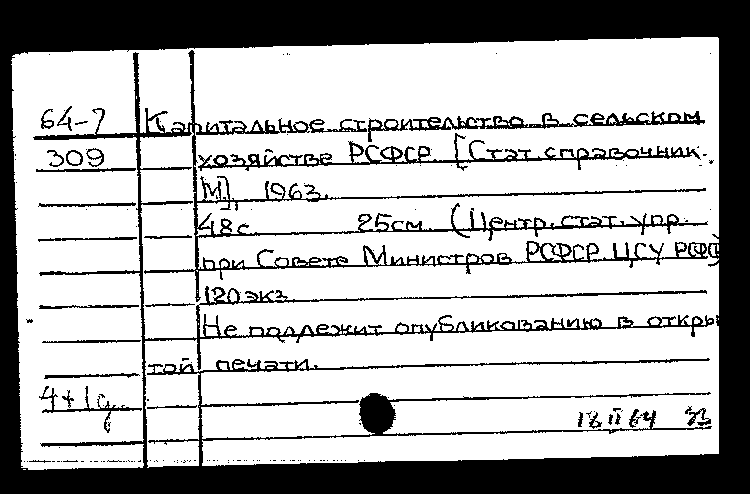 64-7 Капитальное строительство в сельском
309 хозяйстве РСФСР. [Стат. справочник.
М], 1963.
48с. 25см. (Центр. стат. упр.
при Совете Министров РСФСР. ЦСУ РСФС
120 экз.
Не подлежит опубликованию в откры
той печати.
4+1д.
18 II 64